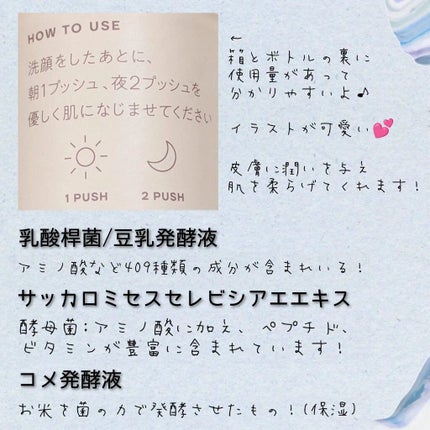 HOW TO USE
洗顔をしたあとに、
朝1プッシュ、夜2プッシュを
優しく肌になじませてください
1 PUSH
2 PUSH
←
箱とボトルの裏に
使用量があって
分かりやすいよ♪
イラストが可愛い💕
皮膚に潤いを与え
肌を柔らげてくれます!
乳酸桿菌/豆乳発酵液
アミノ酸など409種類の成分が含まれいる!
サッカロミセスセレビシアエエキス
酵母菌:アミノ酸に加え、ペプチド、
ビタミンが豊富に含まれています!
コメ発酵液
お米を菌の力で発酵させたもの!(保湿)